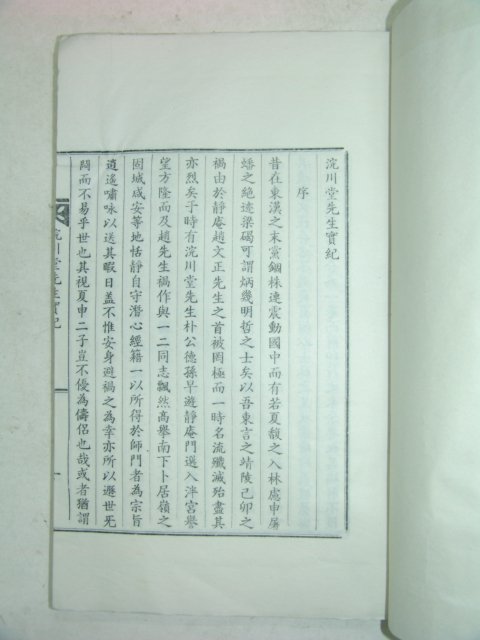 浣川堂先生實紀
序
昔在東漢之末黨錮株連震動國中而有若夏馥之入林慮申屠
蟠之絶迹梁碭可謂炳幾明哲之士矣以吾東言之靖陵己卯之
禍由於靜庵趙文正先生之首被罔極而一時名流殲滅殆盡其
亦烈矣于時有浣川堂先生朴公德孫早遊靜庵門選入泮宮譽
望方隆而及趙先生禍作與一二同志飄然高擧南下卜居嶺之
固城咸安等地恬靜自守潛心經籍一以所得於師門者為宗旨
逍遙嘯咏以送其暇日盖不惟安身避禍之為幸亦所以遯世无
悶而不易乎世也其視夏申二子豈不優為儔侶也哉或者猶謂
浣川堂先生實紀
序
一